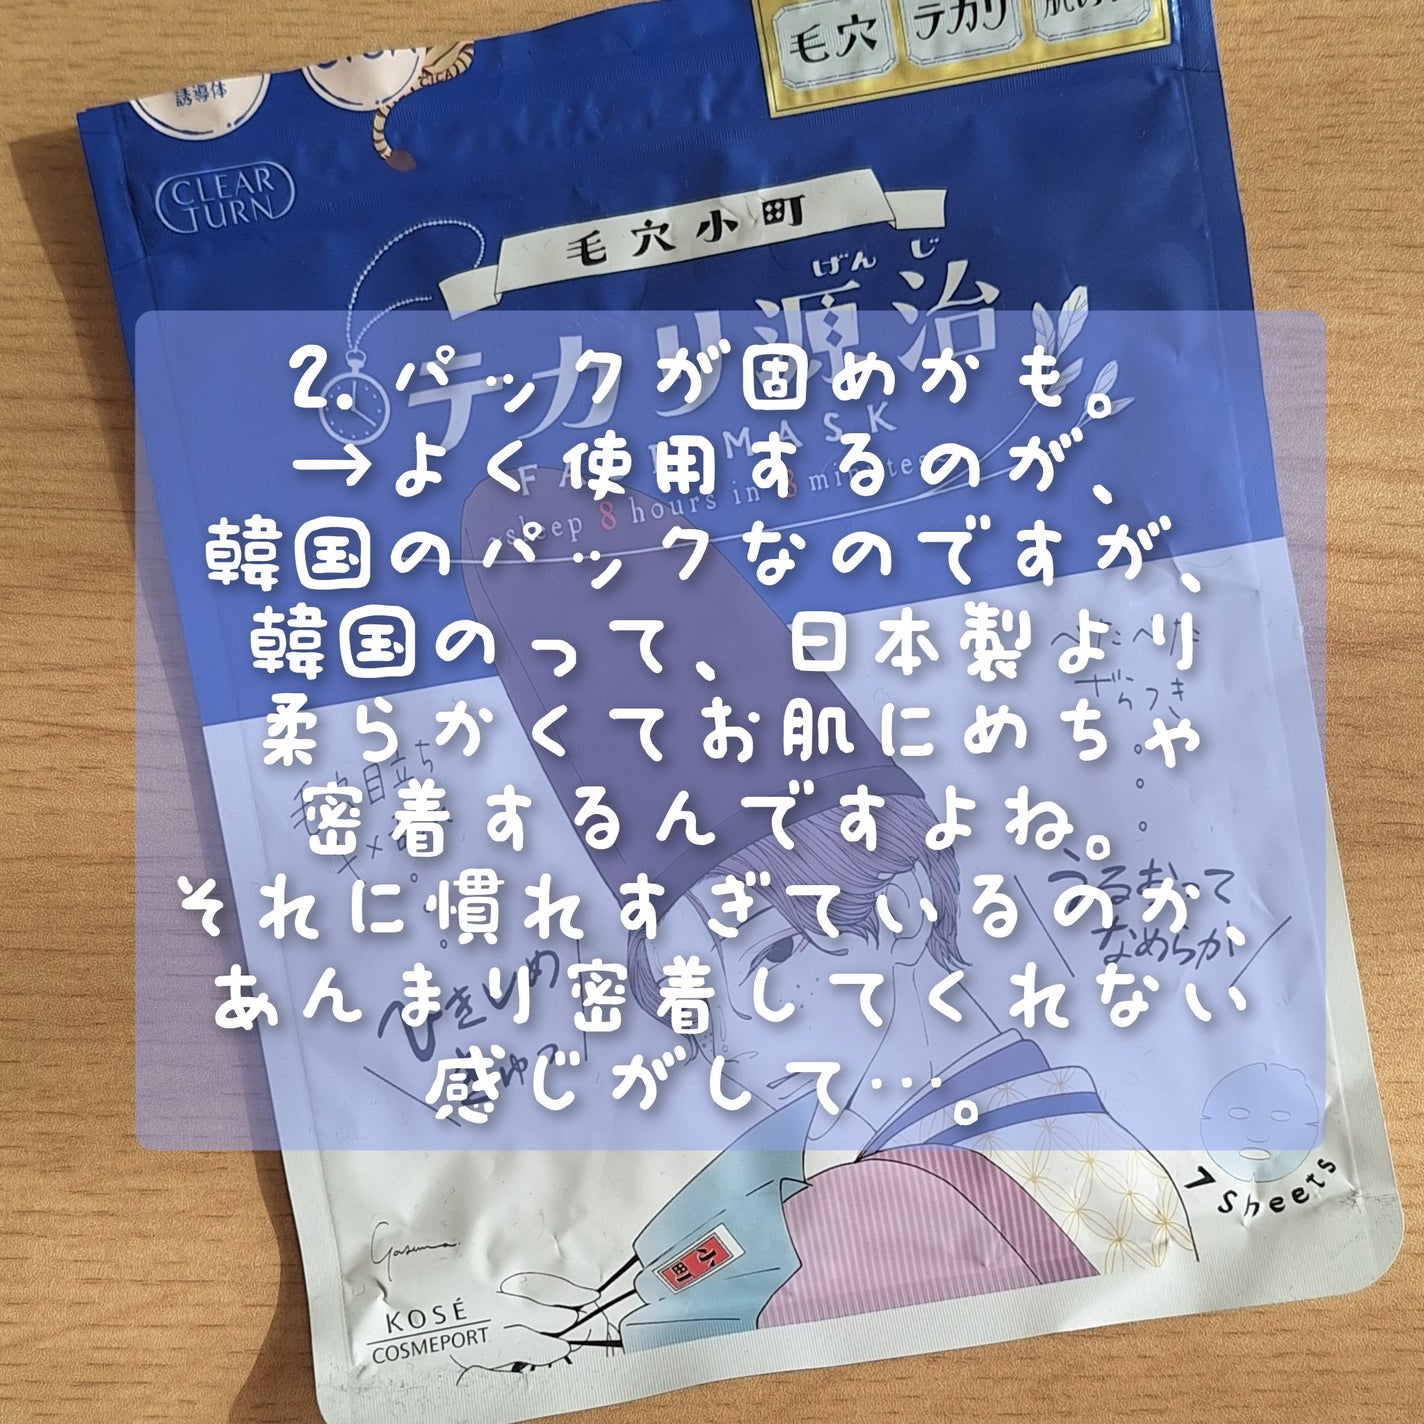 誘導体
毛穴
テカリ
CLEAR
TURN
毛穴小町
げんじ
テカリ源治
FACE MASK
~sleep 8 hours in 8 minutes~
2.パックが固めかも。
→よく使用するのが、
韓国のパックなのですが、
韓国のって、日本製より
柔らかくてお肌にめちゃ
密着するんですよね。
それに慣れすぎているのか、
あんまり密着してくれない
感じがして…。
べたべた
ざらつき
毛穴目立ち
うるおって
なめらか
ひきしめ
きゅっ
小町
7 Sheets
KOSÉ
COSMEPORT